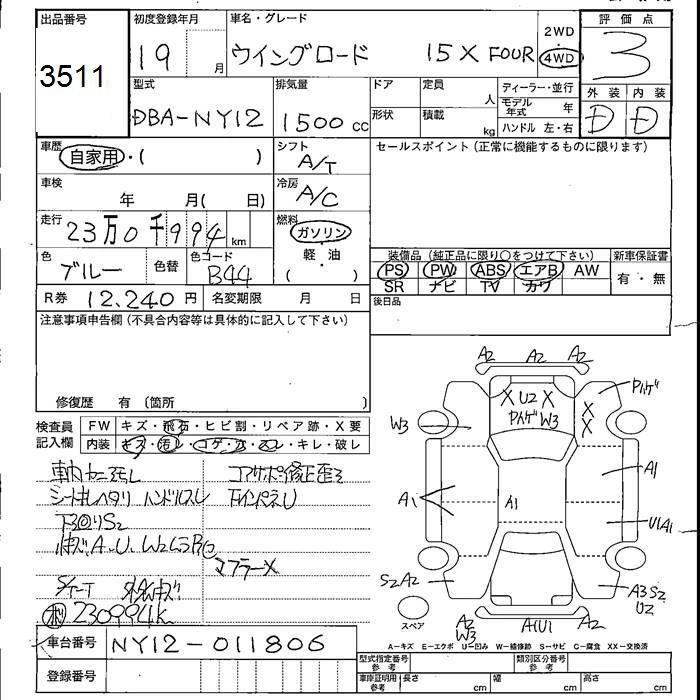 出品番号
3511
初度登録年月
19 月
車名・グレード
ウイングロード 15X FOUR
2WD
・
4WD
評価点
3
外装 内装
D D
型式
DBA-NY12
排気量
1500 cc
ドア
形状
定員 人
積載 kg
ディーラー・並行
モデル年式 年
ハンドル 左・右
車歴
自家用・( )
シフト
A/T
セールスポイント(正常に機能するものに限ります)
車検
年 月( 日)
冷房
A/C
走行
23万0千994 km
燃料
ガソリン
軽・油
( )
色
ブルー
色替
色コード
B44
装備品(純正品に限り○をつけて下さい)
PS PW ABS エアB AW
SR ナビ TV カワ
新車保証書
有・無
R券 12,240 円
名変期限 月 日
後日品
注意事項申告欄(不具合内容等は具体的に記入して下さい)
修復歴 有 〔箇所 〕
検査員
記入欄
FW キズ・飛石・ヒビ割・リペア跡・X要
内装 キズ・汚レ・コゲ・穴・スレ・キレ・破レ
コアサポ修正歪ミ
シートキレヘタリ ハンドルスレ
下回りS2
マフラーX
230994k
車台番号 NY12-011806
登録番号
A2 A2 A2
X U2 X
W3
W3
X
X
A1
A1
A1
U1A1
S2A2
A3S2
U2
スペア
A2
W3
A1U1
A2
A-キズ E-エクボ U-凹み W-補修跡 S-サビ C-腐食 XX-交換済
型式指定番号
参考
類別区分番号
参考
車庫証明用
参考
長さ cm
幅 cm
高さ cm